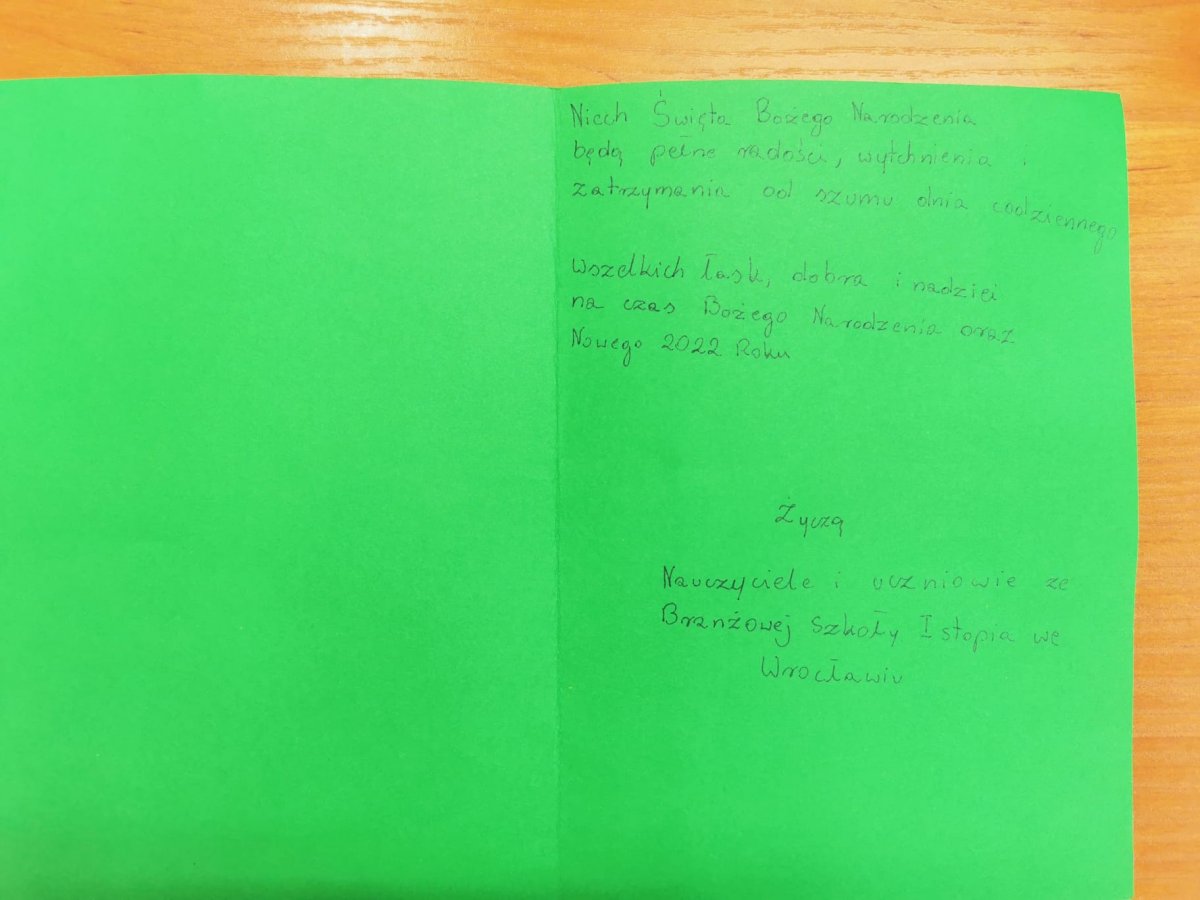 Niech Święta Bożego Narodzenia
będą pełne radości, wytchnienia i
zatrzymania od szumu dnia codziennego
Wszelkich łask, dobra i nadziei
na czas Bożego Narodzenia oraz
Nowego 2022 Roku
Życzą
Nauczyciele i uczniowie ze
Branżowej Szkoły I stopia we
Wrocławiu